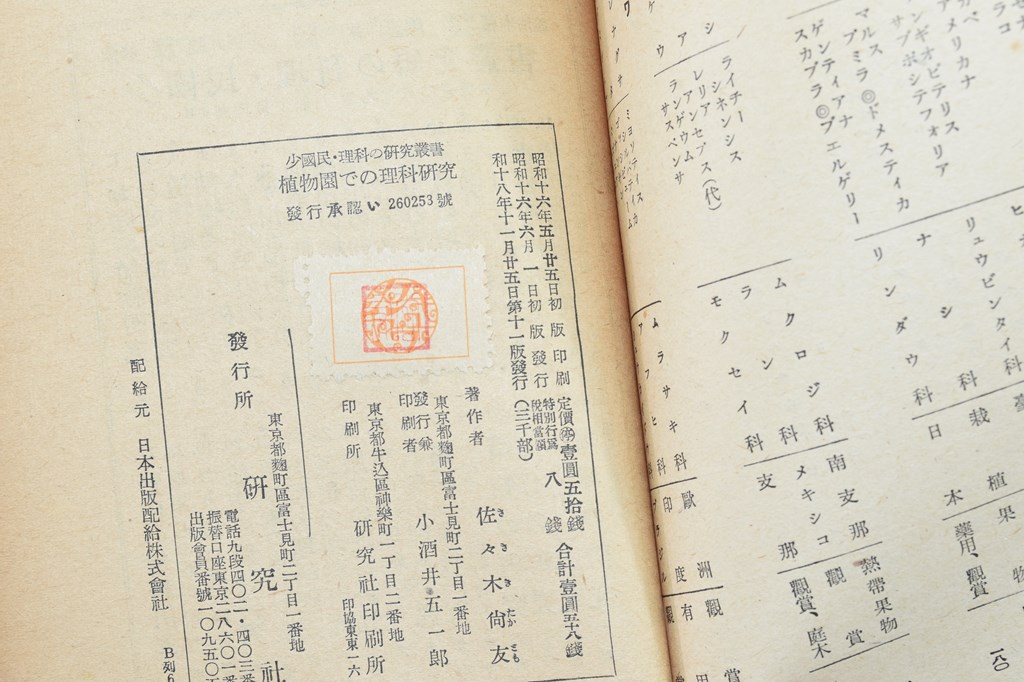 少國民・理科の研究叢書
植物園での理科研究
發行承認い 260253 號
昭和十六年五月廿五日初版印刷
昭和十六年六月一日初版發行
和十八年十一月廿五日第十一版發行
(三千部)
定價㊕壹圓五拾錢
特別行爲
稅相當額
八錢
合計壹圓五十八錢
著作者 佐々木尙友
さ さ き たか とも
東京都麴町區富士見町二丁目一番地
發行兼
印刷者 小酒井五一郎
東京都牛込區神樂町一丁目二番地
印刷所 硏究社印刷所
印協東東一六
發行所
東京都麴町區富士見町二丁目一番地
硏究社
電話九段四〇二一・四〇三番
振替口座東京二八六〇一番
出版會員番號一〇九五〇
配給元 日本出版配給株式會社
B列6
メリカナ
ンギオピテリス
サブポシテフォリア
マルス
プミラ◎ドメスティカ
ゲンティアナ
スカブラ◎ブエルゲリー
シアウ
ライチー
シネンシス
レリア
アンセプス(代)
ランゲウム
サスペンサ
リュウビンタイ科
ナシ科
リンダウ科
ムクロジ科
ラン科
モクセイ科
ムラサキ科
臺
栽
日木
南支那
メキシコ
支那
歐洲
印度
植物
果
藥用、
熱帶果物
觀賞
觀賞、庭木
觀賞
有
一八〇